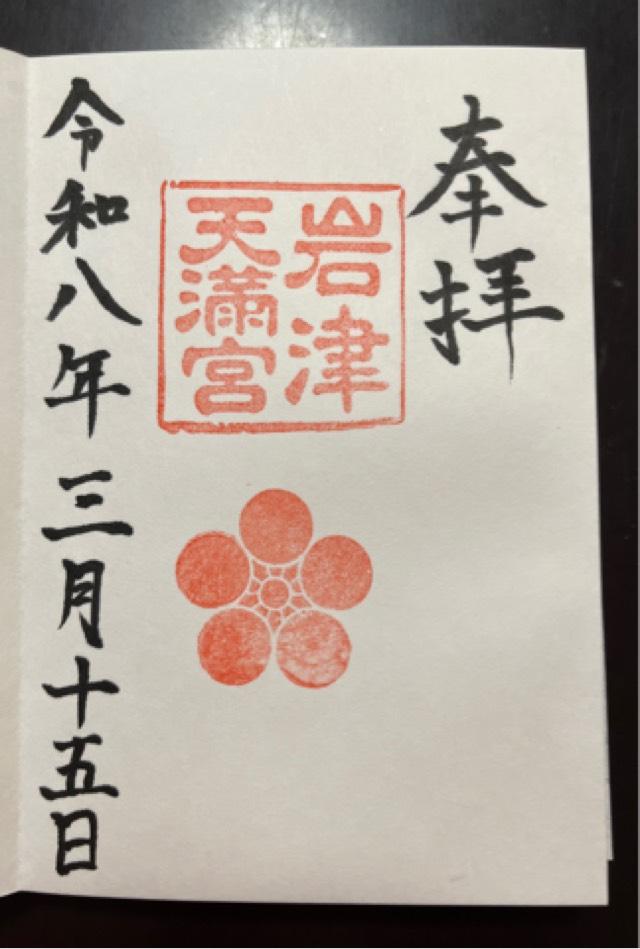 奉拝
岩津
天満宮
令和八年三月十五日